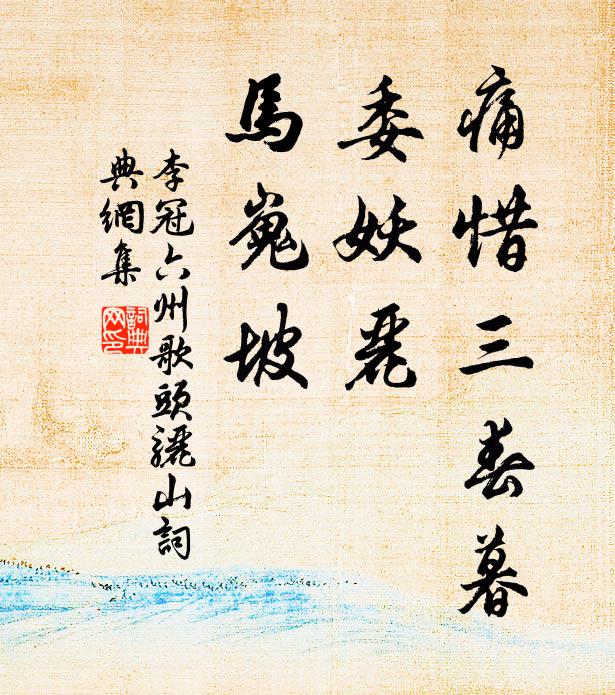 痛惜三春暮
委妖麗
馬嵬坡
李冠六州歌頭驪山詞
典網集
詞典
网印